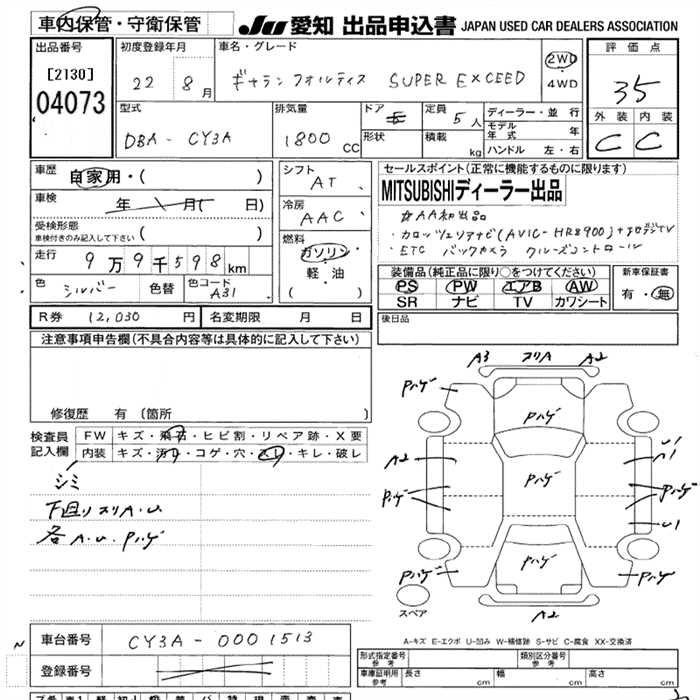 車内保管・守衛保管
JU 愛知 出品申込書 JAPAN USED CAR DEALERS ASSOCIATION
出品番号
[2130]
04073
初度登録年月
22 8月
車名・グレード
ギャラン フォルティス SUPER EXCEED
2WD
4WD
評価点
35
外装 内装
C C
型式
DBA - CY3A
排気量
1800 CC
ドア
形状
定員 5人
積載 kg
ディーラー・並行
モデル年式 年
ハンドル 左・右
車歴
自家用・( )
車検
年 月( 日)
受検形態
車検付きのみ記入して下さい ( )
走行
9万9千598km
色 シルバー 色替 色コード A31
シフト
AT
冷房
AAC
燃料
ガソリン
軽・油
( )
セールスポイント(正常に機能するものに限ります)
MITSUBISHIディーラー出品
AA初出品
・カロッツェリアナビ(AVIC-HR8900)+
・ETC バックカメラ クルーズコントロール
装備品(純正品に限り○をつけてください)
PS PW エアB AW
SR ナビ TV カワシート
新車保証書
有・無
R券 12,030円 名変期限 月 日
後日品
注意事項申告欄(不具合内容等は具体的に記入して下さい)
修復歴 有 (箇所 )
検査員記入欄
FW キズ・飛石・ヒビ割・リペア跡・X要
内装 キズ・汚れ・コゲ・穴・スレ・キレ・破レ
シミ
下廻りスリA.U
各A.U.Pハゲ
A3 スリA A2
Pハゲ Pハゲ Pハゲ
A2 U1
Pハゲ Pハゲ Pハゲ
U1
Pハゲ Pハゲ Pハゲ
スペア
A2
A-キズ E-エクボ U-凹み W-補修跡 S-サビ C-腐食 XX-交換済
車台番号 CY3A-0001513
登録番号
形式指定番号 参考 類別区分番号 参考
車庫証明用 参考 長さ cm 幅 cm 高さ cm